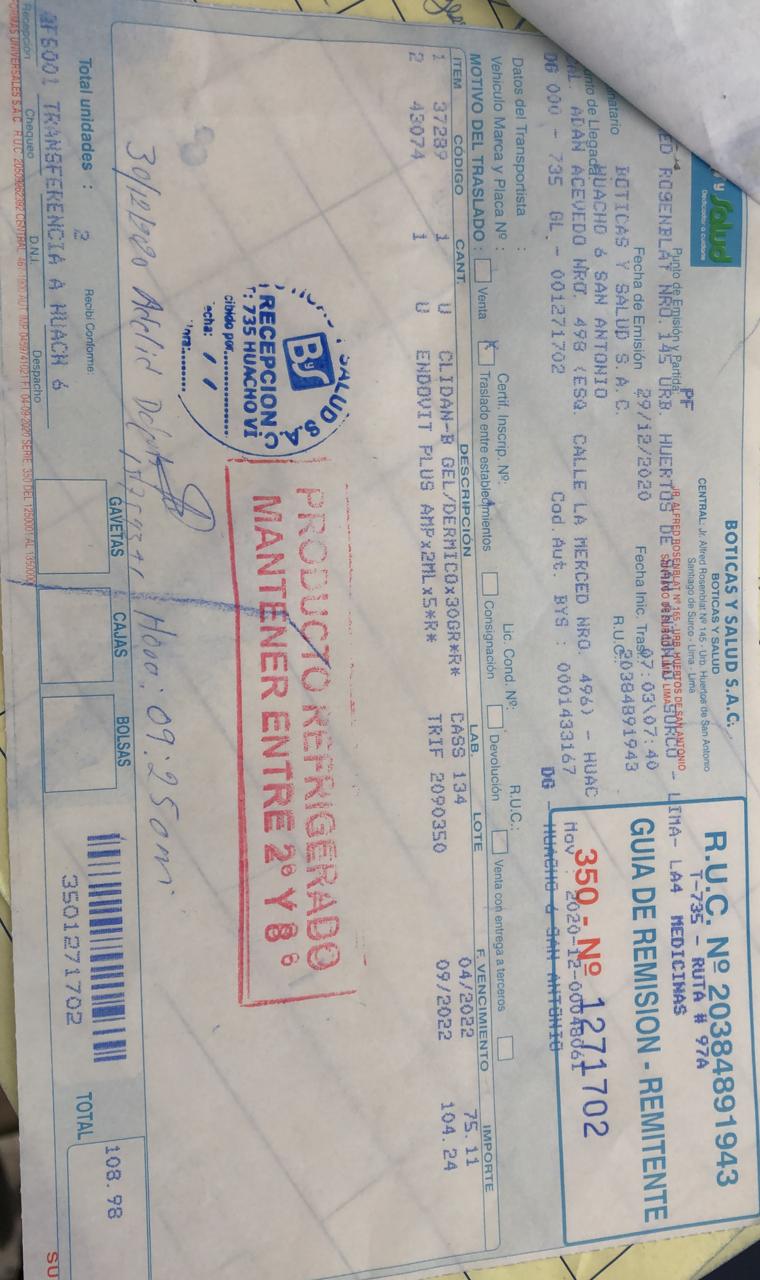 y Salud
Dedicados a cuidarte
BOTICAS Y SALUD S.A.C.
BOTICAS Y SALUD
CENTRAL: Jr. Alfred Rosenblat Nº 145 - Urb. Huertos de San Antonio
Santiago de Surco - Lima - Lima
R.U.C. Nº 20384891943
T-735 - RUTA # 97A
MEDICINAS
GUIA DE REMISION - REMITENTE
350 - Nº 1271702
Mov : 2020-12-00048061
PF
Punto de Emisión y Partida
ED ROSENBLAT NRO. 145 URB. HUERTOS DE SAN ANTONIO SURCO - LIMA- LA4
JR. ALFRED ROSENBLAT Nº 165, URB. HUERTOS DE SAN ANTONIO
Fecha de Emisión 29/12/2020 Fecha Inic. Tras. 07:03\07:40
BOTICAS Y SALUD S.A.C. R.U.C.: 20384891943
HUACHO 6 SAN ANTONIO
nto de Llegada
RAL. ADAN ACEVEDO NRO. 498 (ESQ. CALLE LA MERCED NRO. 496) - HUAC
DG 000 - 735 GL. - 001271702 Cod.Aut. BYS : 0001433167 DG - HUACHO 6 SAN ANTONIO
Datos del Transportista : R.U.C.:
Vehiculo Marca y Placa Nº : Certif. Inscrip. Nº: Lic. Cond. Nº:
MOTIVO DEL TRASLADO : Venta X Traslado entre establecimientos Consignación Devolución Venta con entrega a terceros
ITEM CÓDIGO CANT. DESCRIPCIÓN LAB. LOTE F. VENCIMIENTO IMPORTE
1 37289 1 U CLIDAN-B GEL/DERMICOx30GR*R* CASS 134 04/2022 75.11
2 43074 1 U ENDOVIT PLUS AMPx2MLx5*R* TRIF 2090350 09/2022 104.24
PRODUCTO REFRIGERADO
MANTENER ENTRE 2º Y 8º
SALUD S A
ByS
RECEPCION
T: 735 HUACHO VI
cibido por
echa: / /
30/12/2020 Adelid Hora: 09:25am
Total unidades : 2 Recibí Conforme: GAVETAS CAJAS BOLSAS TOTAL 108.98
3501271702
3F6001 TRANSFERENCIA A HUACH 6
Recepción Chequeo D.N.I. Despacho
FORMAS UNIVERSALES S.A.C. R.U.C.
SU